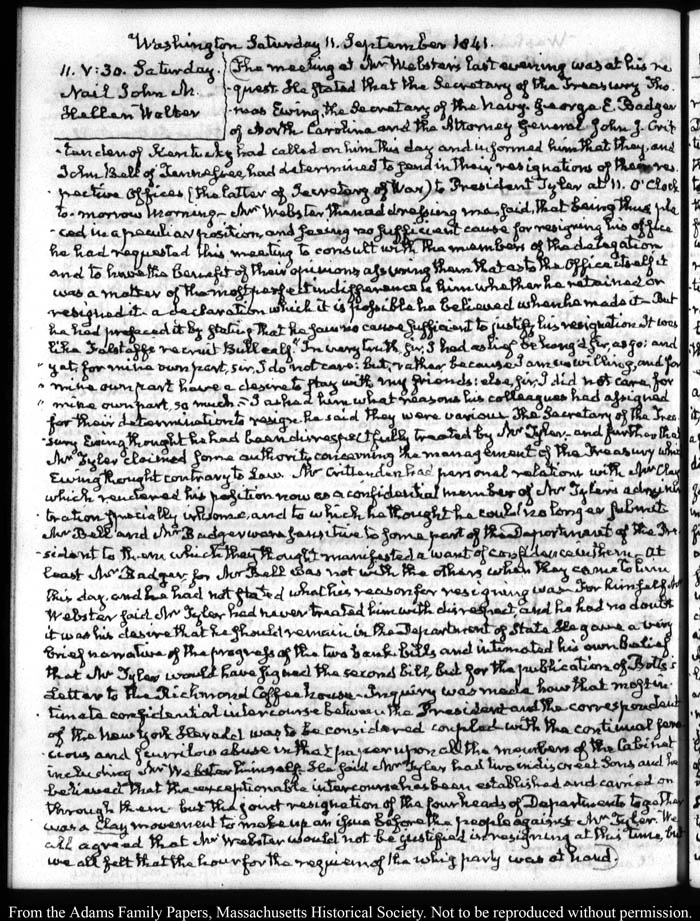 Washington Saturday 11. September 1841.
11. V:30. Saturday.
Nail John M.
Hellen Walter
The meeting at Mr Webster's last evening was at his re
quest. He stated that the Secretary of the Treasury Tho-
mas Ewing, the Secretary of the Navy. George E. Badger
of North Carolina and the Attorney General John J. Crit
tenden of Kentucky had called on him this day and informed him that they, and
John Bell of Tennessee, had determined to send in their resignations of their res-
pective Offices (the latter of Secretary of War) to President Tyler at 11. O'Clock
to-morrow Morning— Mr Webster then addressing me, said, that being thus pla
-ced in a peculiar position, and seeing no sufficient cause for resigning his office
he had requested this meeting to consult with the members of the delegation
and to have the benefit of their opinions, assuring them that as to the Office itself it
was a matter of the most perfect indifference to him whether he retained or
resigned it. a declaration which it is possible he believed when he made it— But
he had prefaced it by stating that he saw no cause sufficient to justify his resignation. It was
like Falstaff's recruit Bullcalf. "In very truth, sir, I had as lief be hang'd sir, as go: and
" yet, for mine own part, sir, I do not care: but, rather, because I am unwilling, and for
" mine own part have a desire to stay with my friends: else, sir, I did not care, for
" mine own part, so much." I asked him what reasons his colleagues had assigned
for their determination to resign. he said they were various. The Secretary of the Trea
-sury Ewing thought he had been disrespectfully treated by Mr Tyler. and further that
Mr Tyler claimed some authority concerning the management of the Treasury which
Ewing thought contrary to Law. Mr Crittenden had personal relations with Mr Clay
which rendered his position now as a confidential member of Mr Tyler's adminis
tration specially irksome, and to which he thought he could no longer submit
Mr Bell and Mr Badger were sensitive to some part of the Department of the Pre
-sident to them which they thought manifested a want of confidence in them— At
least Mr Badger, for Mr Bell was not with the others when they came to him
this day, and he had not stated what his reason for resigning was— For himself Mr
Webster said Mr Tyler had never treated him with disrespect, and he had no doubt
it was his desire that he should remain in the Department of State. He gave a very
brief narrative of the progress of the two bank bills and intimated his own belief
that Mr Tyler would have signed the second bill, but for the publication of Botts's
Letter to the Richmond Coffee house— Inquiry was made how that most in
timate confidential intercourse between the President and the correspondent
of the New York Herald was to be considered coupled with the continual fero
cious and scurrilous abuse in that paper upon all the members of the Cabinet
including Mr Webster himself. He said Mr Tyler had two indiscreet Sons and he
believed that the exceptionable intercourse has been established and carried on
through them— but the joint resignation of the four heads of Departments together
was a Clay movement to make up an issue before the people against Mr Tyler. We
all agreed that Mr Webster would not be justified in resigning at this time, but
we all felt that the hour for the requiem of the whig party was at hand.
From the Adams Family Papers, Massachusetts Historical Society. Not to be reproduced without permission.